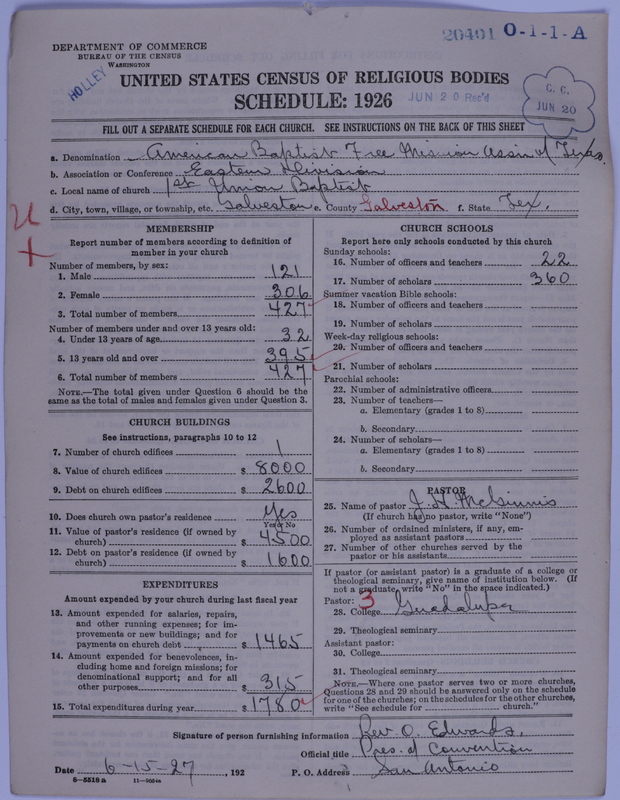 20401 O-1-1-A
DEPARTMENT OF COMMERCE
BUREAU OF THE CENSUS
WASHINGTON
HOLLEY
UNITED STATES CENSUS OF RELIGIOUS BODIES
SCHEDULE: 1926
JUN 20 Rec'd
C. C.
JUN 20
FILL OUT A SEPARATE SCHEDULE FOR EACH CHURCH. SEE INSTRUCTIONS ON THE BACK OF THIS SHEET
a. Denomination American Baptist Free Mission Ass'n of Texas
b. Association or Conference Eastern Division
c. Local name of church 1st Union Baptist
d. City, town, village, or township, etc. Galveston e. County Galveston f. State Tex.
MEMBERSHIP
Report number of members according to definition of
member in your church
Number of members, by sex:
1. Male 121
2. Female 306
3. Total number of members 427
Number of members under and over 13 years old:
4. Under 13 years of age 32
5. 13 years old and over 395
6. Total number of members 427
NOTE.—The total given under Question 6 should be
same as the total of males and females given under Question 3.
CHURCH BUILDINGS
See instructions, paragraphs 10 to 12
7. Number of church edifices 1
8. Value of church edifices $ 8000
9. Debt on church edifices $ 2600
10. Does church own pastor's residence Yes
Yes or No
11. Value of pastor's residence (if owned by
church) $ 4500
12. Debt on pastor's residence (if owned by
church) $ 1600
EXPENDITURES
Amount expended by your church during last fiscal year
13. Amount expended for salaries, repairs,
and other running expenses; for im-
provements or new buildings; and for
payments on church debt $ 1465
14. Amount expended for benevolences, in-
cluding home and foreign missions; for
denominational support; and for all
other purposes $ 315
15. Total expenditures during year $ 1780
CHURCH SCHOOLS
Report here only schools conducted by this church
Sunday schools:
16. Number of officers and teachers 22
17. Number of scholars 360
Summer vacation Bible schools:
18. Number of officers and teachers
19. Number of scholars
Week-day religious schools:
20. Number of officers and teachers
21. Number of scholars
Parochial schools:
22. Number of administrative officers
23. Number of teachers—
a. Elementary (grades 1 to 8)
b. Secondary
24. Number of scholars—
a. Elementary (grades 1 to 8)
b. Secondary
PASTOR
25. Name of pastor J. H. McGinnis
(If church has no pastor, write "None")
26. Number of ordained ministers, if any, em-
ployed as assistant pastors
27. Number of other churches served by the
pastor or his assistants
If pastor (or assistant pastor) is a graduate of a college or
theological seminary, give name of institution below. (If
not a graduate, write "No" in the space indicated.)
Pastor: 3
28. College Guadalupe
29. Theological seminary
Assistant pastor:
30. College
31. Theological seminary
NOTE.—Where one pastor serves two or more churches,
Questions 28 and 29 should be answered only on the schedule
for one of the churches; on the schedules for the other churches,
write "See schedule for church."
Signature of person furnishing information Rev. O. Edwards,
Official title Pres. of Convention
Date 6-15-27, 192 P. O. Address San Antonio
8—5518 a 11—9054a